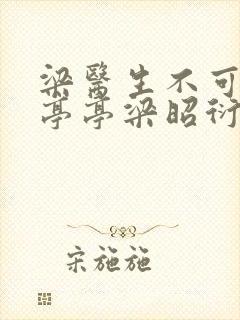 梁醫生不可
亭亭梁昭衍
宋施施